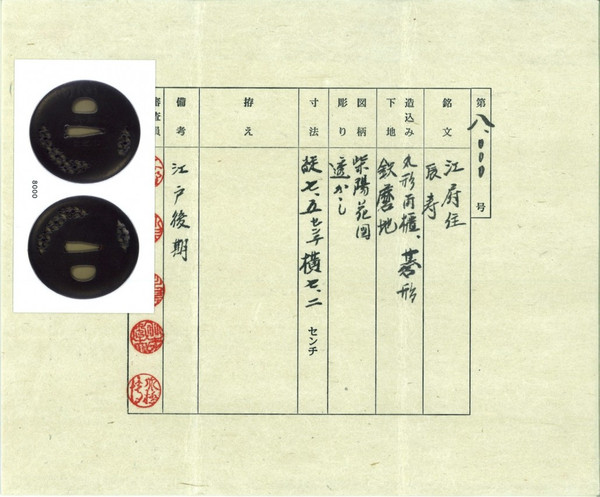 第八、〇〇〇号
銘文
江府住
辰寿
造込み
下地
丸形両櫃、碁形
鉄磨地
図柄
彫り
紫陽花図
透かし
寸法
縦七、五センチ横七、二センチ
拵え
備考
江戸後期
審査員
8000